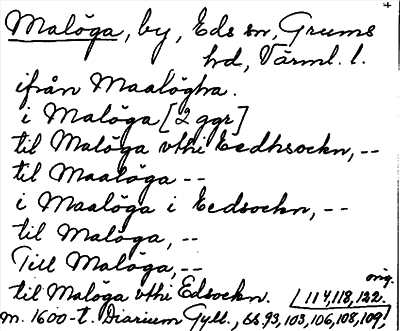 Malöga, by, Eds sn, Grums
hd, Värml. l.
ifrån Maalögha.
i Malöga [2 ggr]
til Malöga vthi Eedhsockn, --
til Maalöga --
i Maalöga i Eedsockn, --
til Malöga, --
Till Malöga, --
til Malöga vthi Edsockn.
orig.
114, 118, 122.
m. 1600-t. Diarium Gyll., ss. 93, 103, 106, 108, 109,